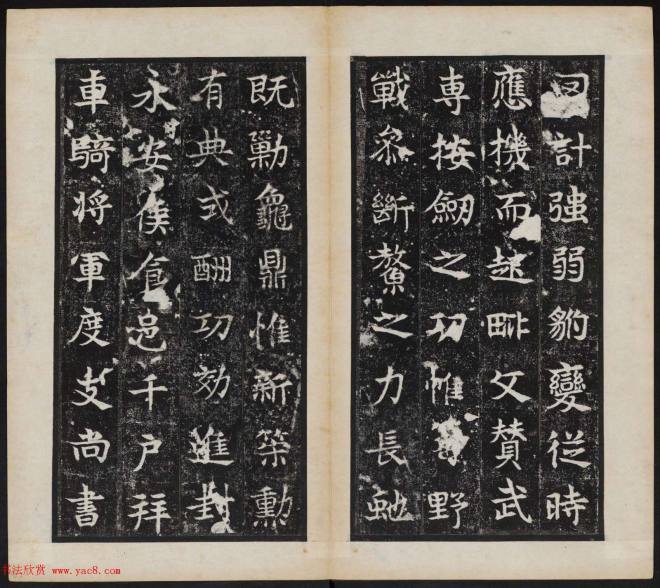 計強弱豹變從時
應機而起毗文贊武
專按劒之功惟野
戰衆斷鼇之力長虵
既勦龜鼎惟新策勳
有典式酬功効進封
永安侯食邑千戶拜
車騎將軍度支尚書
书法欣赏 www.yac8.com